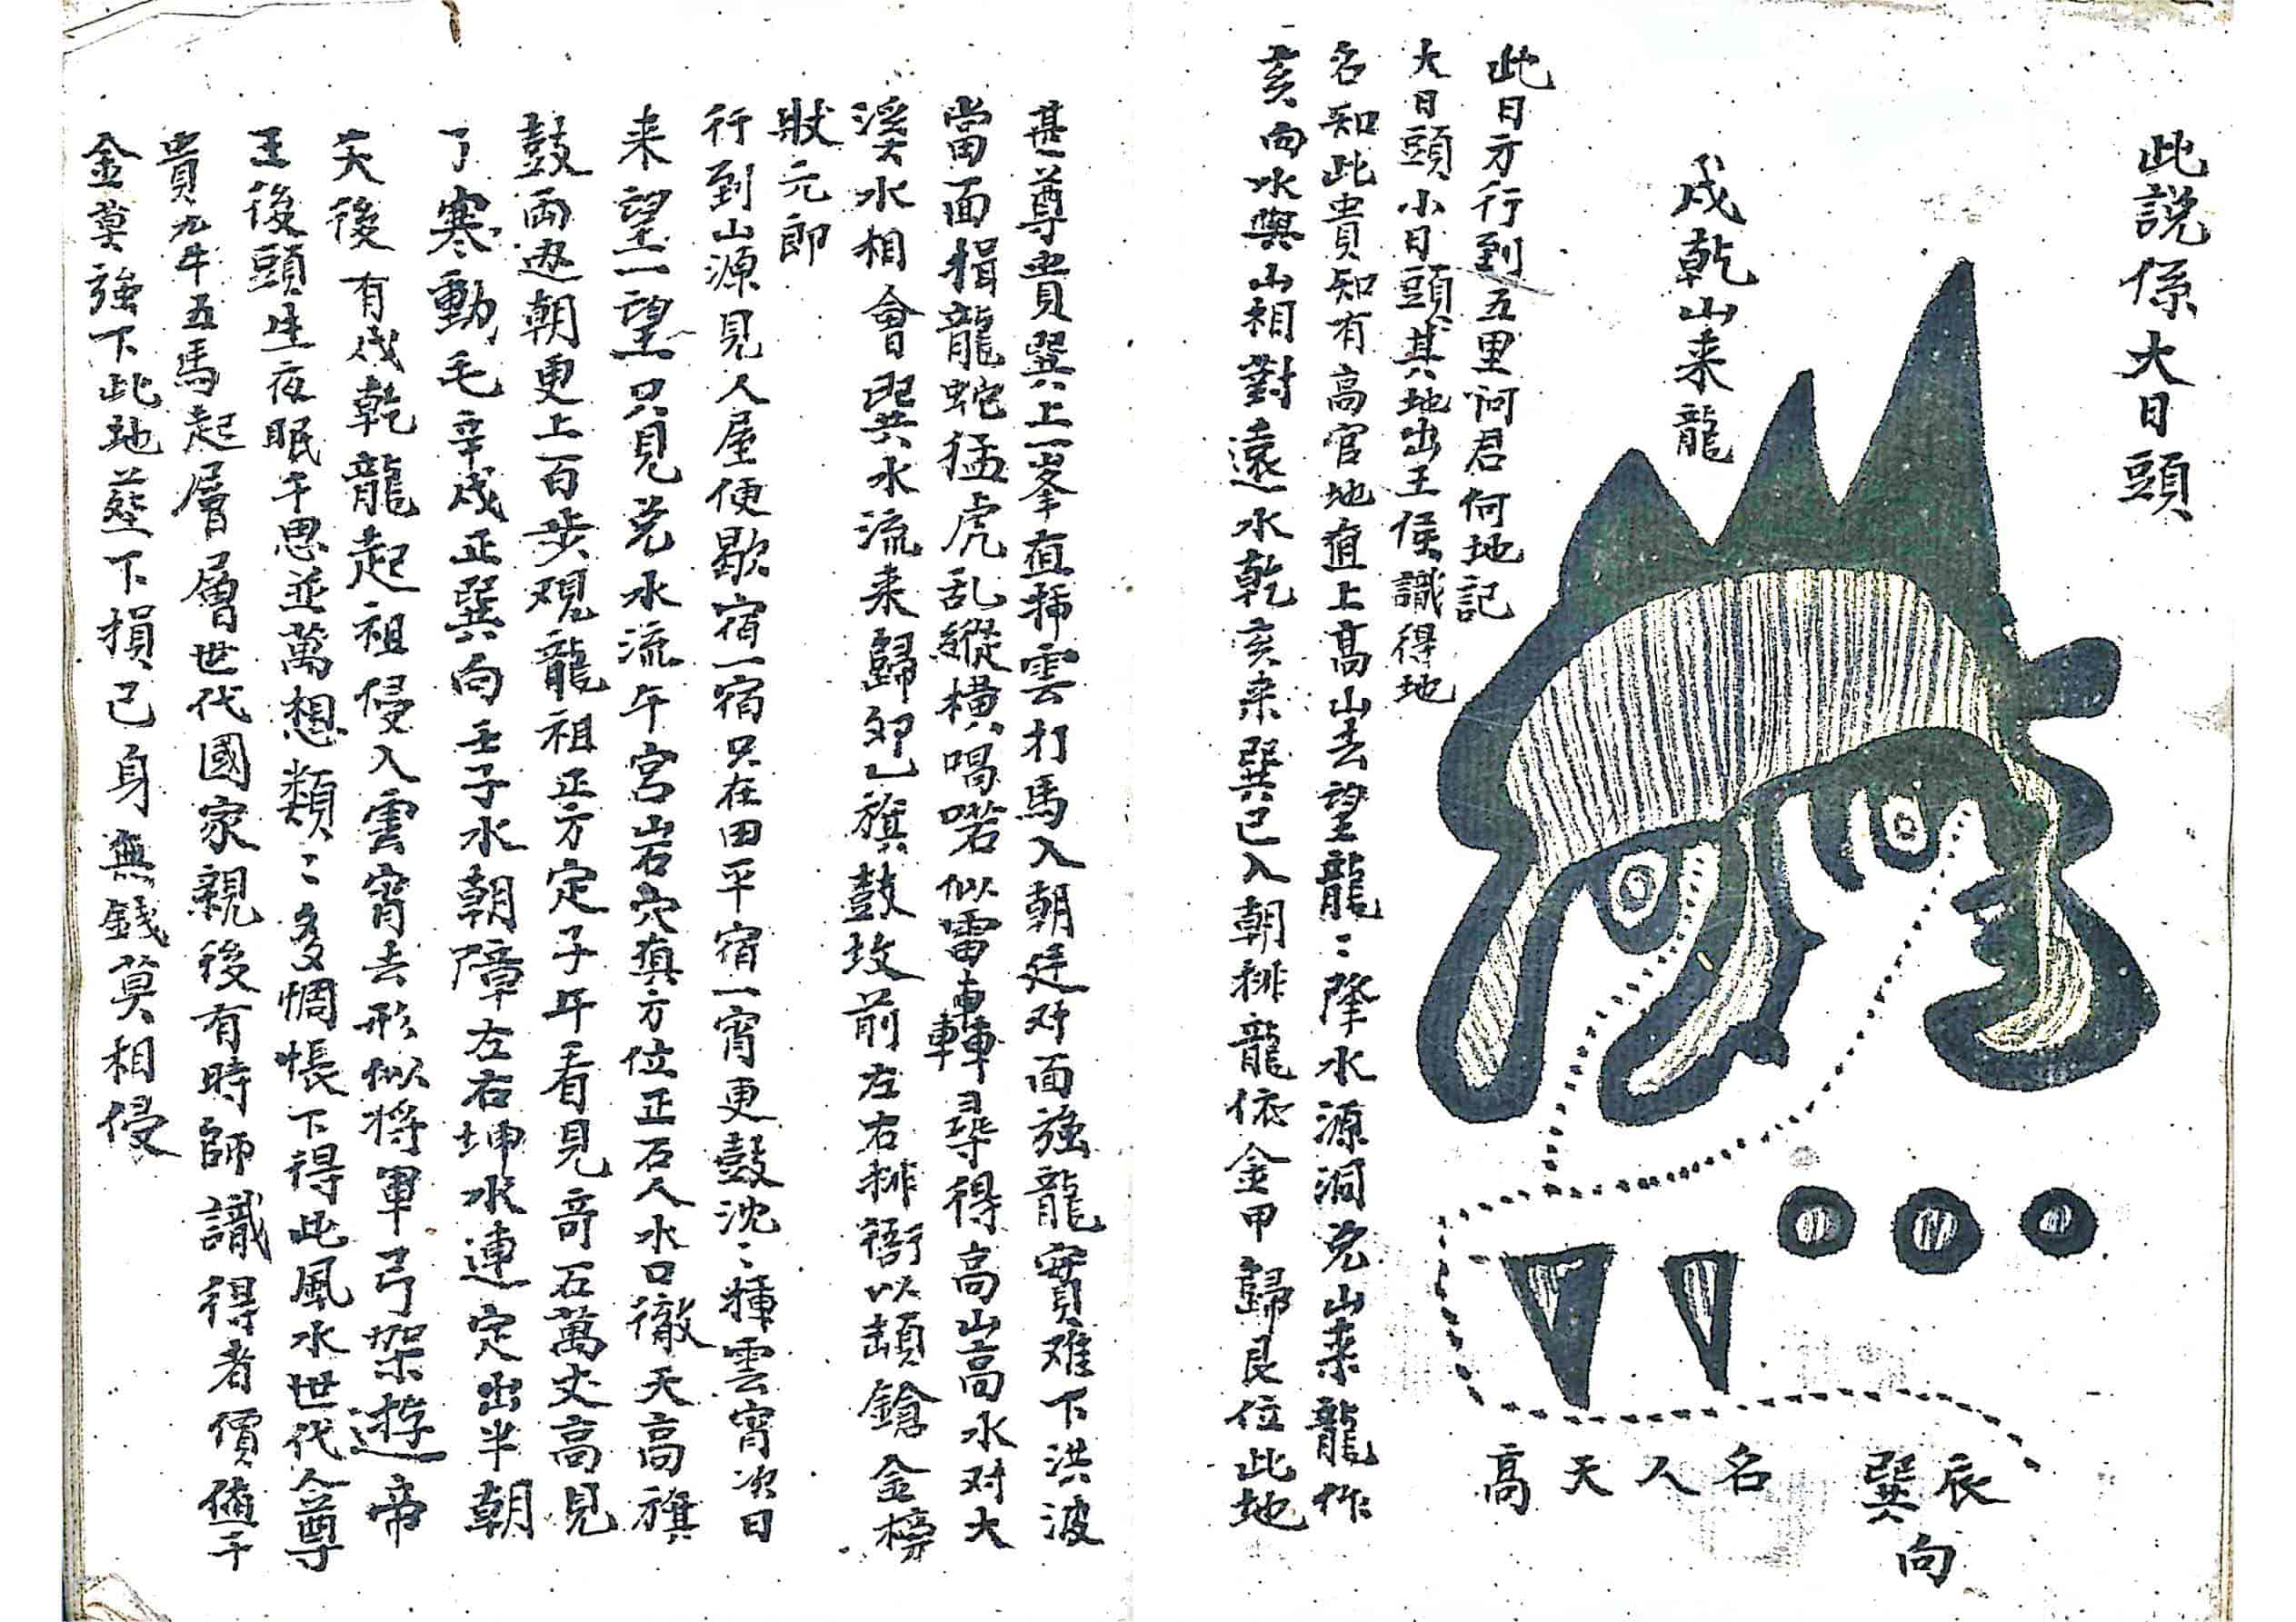 此說係大日頭
戌乾山来龍
此日方行到五里问君何地記
大日頭小日頭其地出王侯識得地
名知此貴知有高官地直上高山去望龍〻降水源洞兑山来龍作
亥向水與山相對遠水乾亥来巽巳入朝排龍依金甲歸艮位此地
辰巽向
名人天高
甚尊貴巽上一峯直插雲打馬入朝廷对面強龍實难下洪波
當面捐龍蛇猛虎乱縱横喝喏似雷轟轟尋得高山高水对大
溪水相會巽水流来歸夘乚旗鼓坟前左右排衙以頡鎗金榜
狀元郎
行到山源見人屋便歇宿一宿只在田平宿一宵更鼓沈〻種雲宵次日
来望一望只見兑水流午宫山岩穴真方位正石人水口徹天高旗
鼓両边朝更上一百步观龍祖正方定子午看見奇石萬丈高見
了寒動毛辛戌正巽向壬子水朝障左右坤水連定出半朝
天後有戌乾龍起祖侵入雲宵去形似将軍弓架遊帝
王後頭生夜眠千思並萬想類〻多惆悵下得此風水世代人尊
貴九牛五馬起層層世代國家親後有時師識得者價值千
金莫強下此地塟下損己身無銭莫相侵